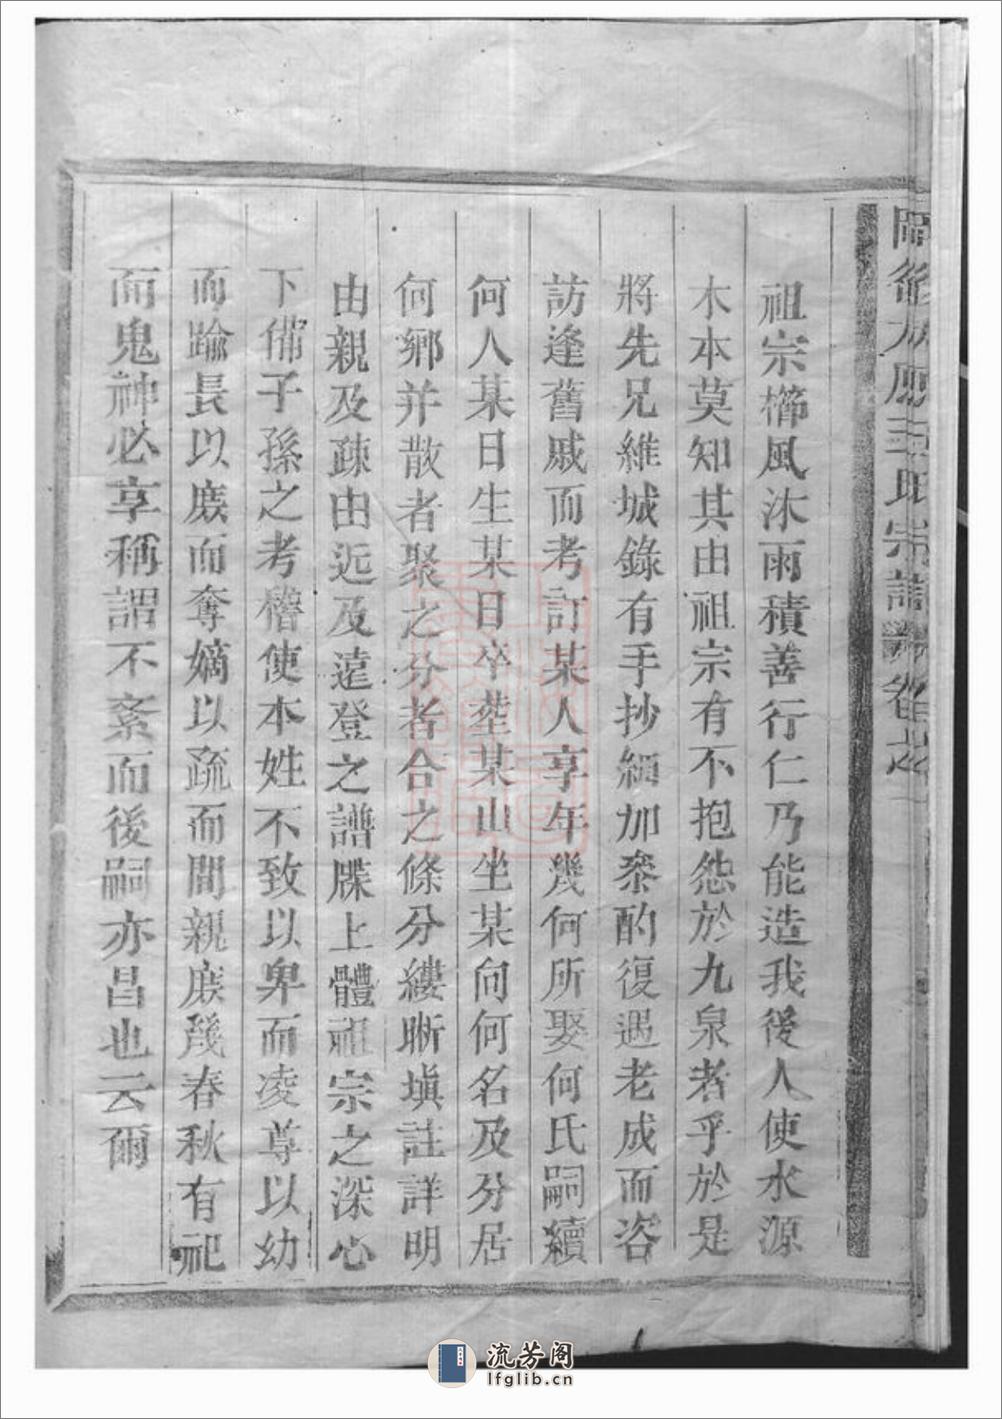 祖宗櫛風沐雨積善行仁乃能造我後人使水源
木本莫知其由祖宗有不抱怨於九泉者乎於是
將先兄維城錄有手抄緬加叅酌復遇老成而咨
訪逢舊戚而考訂某人享年幾何所娶何氏嗣續
何人某日生某日卒塟某山坐某向何名及分居
何鄉并散者聚之分者合之條分縷晰塡註詳明
由親及疎由近及遠登之譜牒上體祖宗之深心
下俻子孫之考稽使本姓不致以卑而凌尊以幼
而踰長以庻而奪嫡以疏而間親庻幾春秋有祀
而鬼神必享稱謂不紊而後嗣亦昌也云爾
王氏宗譜
流芳阁
lfglib.cn